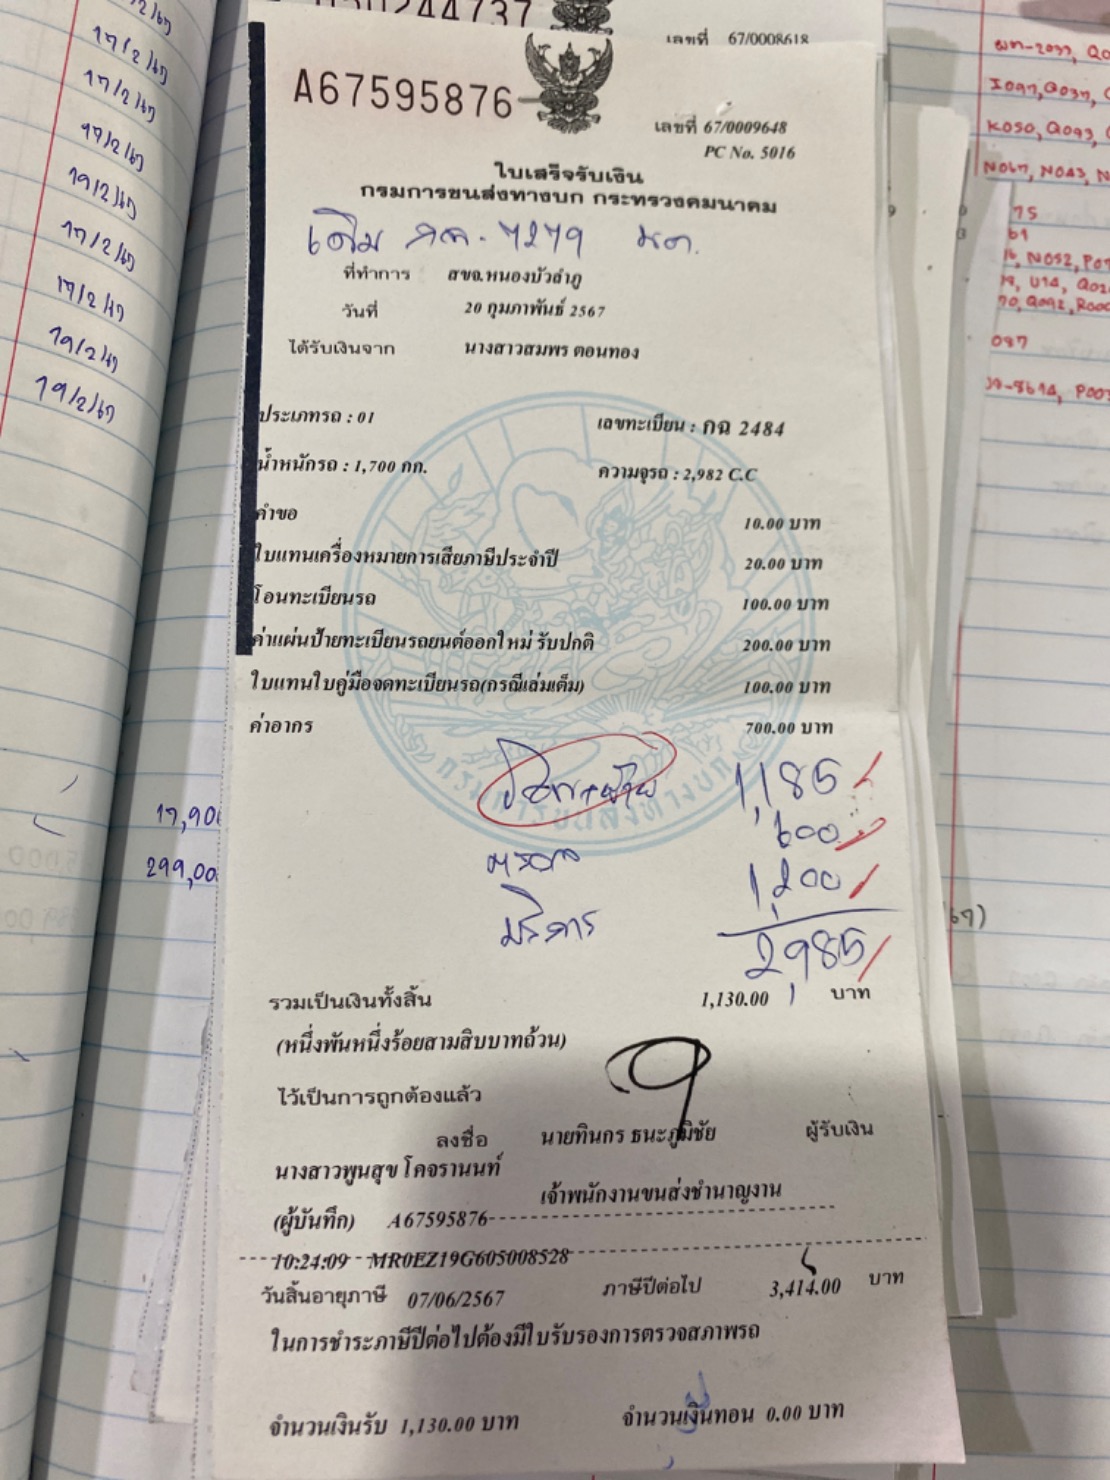 เลขที่ 67/0008618
A67595876
เลขที่ 67/0009648
PC No. 5016
ใบเสร็จรับเงิน
กรมการขนส่งทางบก กระทรวงคมนาคม
เดิม 7279
ที่ทำการ สขจ.หนองบัวลำภู
วันที่ 20 กุมภาพันธ์ 2567
ได้รับเงินจาก นางสาวสมพร ตอนทอง
ประเภทรถ : 01 เลขทะเบียน : กฉ 2484
น้ำหนักรถ : 1,700 กก. ความจุรถ : 2,982 C.C
คำขอ 10.00 บาท
ใบแทนเครื่องหมายการเสียภาษีประจำปี 20.00 บาท
โอนทะเบียนรถ 100.00 บาท
ค่าแผ่นป้ายทะเบียนรถยนต์ออกใหม่ รับปกติ 200.00 บาท
ใบแทนใบคู่มือจดทะเบียนรถ(กรณีเล่มเต็ม) 100.00 บาท
ค่าอากร 700.00 บาท
1,185
600
1,200
บริการ
2,985
กรมการขนส่งทางบก
รวมเป็นเงินทั้งสิ้น 1,130.00 บาท
(หนึ่งพันหนึ่งร้อยสามสิบบาทถ้วน)
ไว้เป็นการถูกต้องแล้ว
ลงชื่อ นายทินกร ธนะภูมิชัย ผู้รับเงิน
นางสาวพูนสุข โคจรานนท์
เจ้าพนักงานขนส่งชำนาญงาน
(ผู้บันทึก) A67595876
10:24:09 MR0EZ19G605008528
วันสิ้นอายุภาษี 07/06/2567 ภาษีปีต่อไป 3,414.00 บาท
ในการชำระภาษีปีต่อไปต้องมีใบรับรองการตรวจสภาพรถ
จำนวนเงินรับ 1,130.00 บาท จำนวนเงินทอน 0.00 บาท
17/2/67
17/2/67
17/2/67
19/2/67
17/2/67
17/2/67
19/2/67
19/2/67
17,90
299,00
I097, Q037,
K050, Q093,
N067, N043, N
75
61
N052, P07
U14, Q02
Q092, R00
087
8614, P003
67)